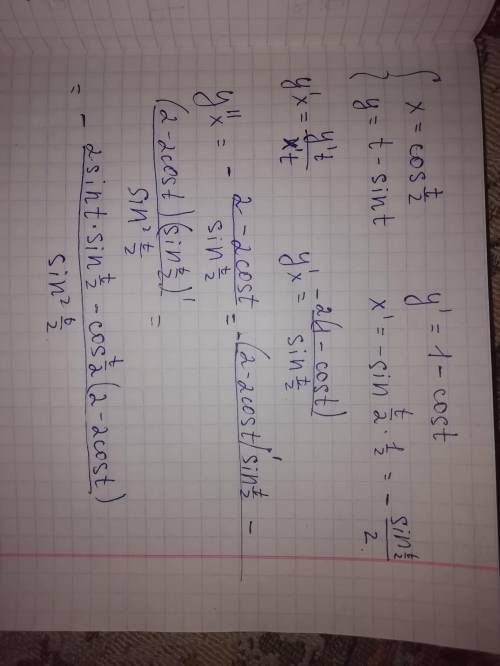 { x = cos t/2    y' = 1 - cost
{ y = t - sint    x' = -sin t/2 · 1/2 = - sin t/2 / 2
y'x = y't / x't    y'x = -2(1 - cost) / sin t/2
y''x = - 2-2cost / sin t/2 = - (2-2cost)' sin t/2 -
(2-2cost)(sin t/2)' / sin² t/2 =
= - 2sint·sin t/2 - cos t/2 (2-2cost) / sin² t/2